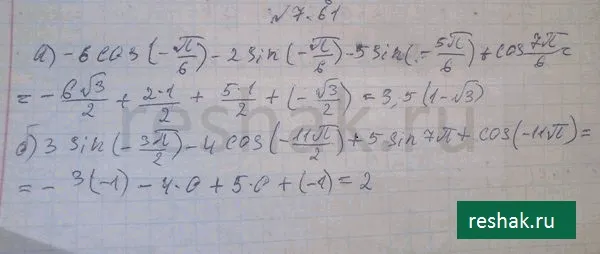 №7.61
а) -6 cos(-π/6) - 2 sin(-π/6) - 5 sin(-5π/6) + cos 7π/6 =
= - 6√3/2 + 2·1/2 + 5·1/2 + (-√3/2) = 3,5(1-√3)
б) 3 sin(-3π/2) - 4 cos(-11π/2) + 5 sin 7π + cos(-11π) =
= - 3(-1) - 4·0 + 5·0 + (-1) = 2
reshak.ru
reshak.ru